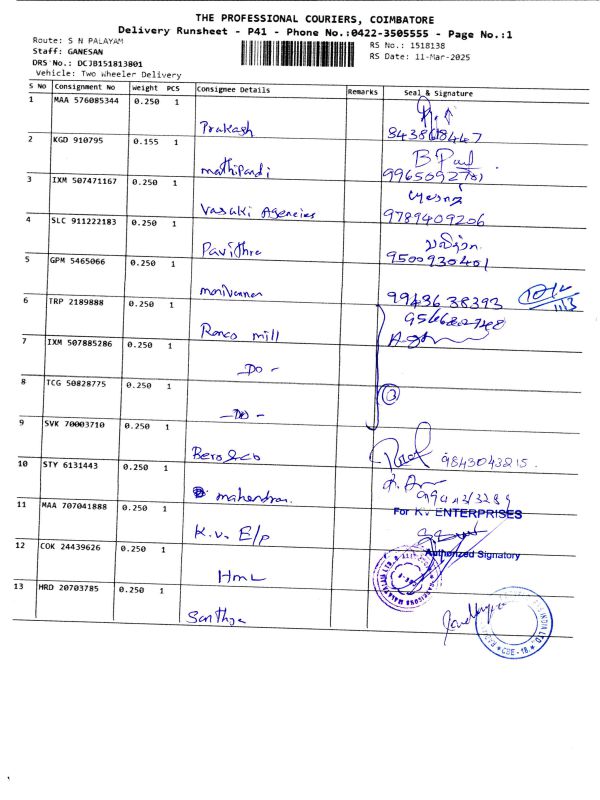 THE PROFESSIONAL COURIERS, COIMBATORE
Delivery Runsheet - P41 - Phone No.:0422-3505555 - Page No.:1
Route: S N PALAYAM
RS No.: 1518138
Staff: GANESAN
RS Date: 11-Mar-2025
DRS No.: DCJB151813801
Vehicle: Two Wheeler Delivery
S NO Consignment No Weight PCS Consignee Details Remarks Seal & Signature
1 MAA 576085344 0.250 1 Prakash
2 KGD 910795 0.155 1 mathipandi
3 IXM 507471167 0.250 1 Vasuki Agencies 9789409206
4 SLC 911222183 0.250 1 Pavithra 9500930401
5 GPM 5465066 0.250 1 manivannan 9943638393
6 TRP 2189888 0.250 1 Ranco mill
7 IXM 507885286 0.250 1 -Do-
8 TCG 50828775 0.250 1 -Do- 3
9 SVK 70003710 0.250 1 9843043215.
10 STY 6131443 0.250 1 mahendran.
For K.V ENTERPRISES
11 MAA 707041888 0.250 1 K.V. E/P
Authorized Signatory
12 COK 24439626 0.250 1 HmL
13 HRD 20703785 0.250 1 Santhya
CBE-18